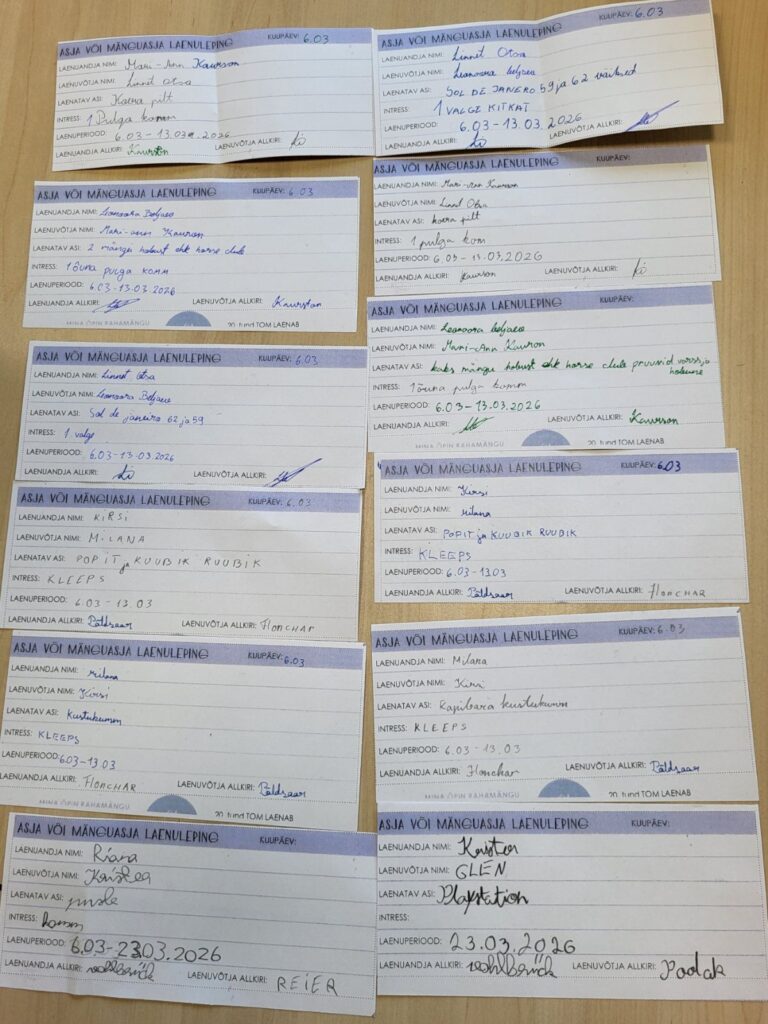 ASJA VÕI MÄNGUASJA LAENULEPING KUUPÄEV: 6.03
LAENUANDJA NIMI: Mari-Ann Kaurson
LAENUVÕTJA NIMI: Linnet Otsa
LAENATAV ASI: Koera pilt
INTRESS: 1 Pulga komm
LAENUPERIOOD: 6.03-13.03.2026
LAENUANDJA ALLKIRI: Kaurson LAENUVÕTJA ALLKIRI:
ASJA VÕI MÄNGUASJA LAENULEPING KUUPÄEV: 6.03
LAENUANDJA NIMI: Linnet Otsa
LAENUVÕTJA NIMI: Leonoora Beljaev
LAENATAV ASI: SOL DE JANERO 59 ja 62 väiksed
INTRESS: 1 VALGE KITKAT
LAENUPERIOOD: 6.03-13.03.2026
LAENUANDJA ALLKIRI: LAENUVÕTJA ALLKIRI:
ASJA VÕI MÄNGUASJA LAENULEPING KUUPÄEV: 6.03
LAENUANDJA NIMI: Leonoora Beljaev
LAENUVÕTJA NIMI: Mari-ann Kaurson
LAENATAV ASI: 2 mängu hobust ehk horse clule
INTRESS: 1 õuna pulga komm
LAENUPERIOOD: 6.03-13.03.2026
LAENUANDJA ALLKIRI: LAENUVÕTJA ALLKIRI: Kaurston
MINA ÕPIN RAHAMÄNGU 20. tund TOM LAENAB
ASJA VÕI MÄNGUASJA LAENULEPING KUUPÄEV:
LAENUANDJA NIMI: Mari-Ann Kaurson
LAENUVÕTJA NIMI: Linnet Otsa
LAENATAV ASI: koera pilt
INTRESS: 1 pulga kom
LAENUPERIOOD: 6.03-13.03.2026
LAENUANDJA ALLKIRI: Kaurson LAENUVÕTJA ALLKIRI:
ASJA VÕI MÄNGUASJA LAENULEPING KUUPÄEV:
LAENUANDJA NIMI: Leonoora beljaev
LAENUVÕTJA NIMI: Mari-Ann Kaurson
LAENATAV ASI: kaks mängu hobust ehk horse clule pruunid varss ja
INTRESS: 1 õuna pulga komm
LAENUPERIOOD: 6.03-13.03.2026
LAENUANDJA ALLKIRI: LAENUVÕTJA ALLKIRI: Kaurson
MINA ÕPIN RAHAMÄNGU 20. tund TOM LAENAB
ASJA VÕI MÄNGUASJA LAENULEPING KUUPÄEV: 6.03
LAENUANDJA NIMI: Linnet Otsa
LAENUVÕTJA NIMI: Leonoora Beljaev
LAENATAV ASI: Sol de janeiro 62 ja 59
INTRESS: 1 valge
LAENUPERIOOD: 6.03-13.03.2026
LAENUANDJA ALLKIRI: LAENUVÕTJA ALLKIRI:
ASJA VÕI MÄNGUASJA LAENULEPING KUUPÄEV: 6.03
LAENUANDJA NIMI: KIRSI
LAENUVÕTJA NIMI: MILANA
LAENATAV ASI: POPIT ja KUUBIK RUUBIK
INTRESS: KLEEPS
LAENUPERIOOD: 6.03-13.03
LAENUANDJA ALLKIRI: Põldsaar LAENUVÕTJA ALLKIRI: Honchar
ASJA VÕI MÄNGUASJA LAENULEPING KUUPÄEV: 6.03
LAENUANDJA NIMI: Kirsi
LAENUVÕTJA NIMI: milana
LAENATAV ASI: POPIT ja KUUBIK RUUBIK
INTRESS: KLEEPS
LAENUPERIOOD: 6.03-13.03
LAENUANDJA ALLKIRI: Põldsaar LAENUVÕTJA ALLKIRI: Honchar
ASJA VÕI MÄNGUASJA LAENULEPING KUUPÄEV: 6.03
LAENUANDJA NIMI: milana
LAENUVÕTJA NIMI: Kirsi
LAENATAV ASI: Kustukumm
INTRESS: KLEEPS
LAENUPERIOOD: 6.03-13.03
LAENUANDJA ALLKIRI: HONCHAR LAENUVÕTJA ALLKIRI: Põldsaar
MINA ÕPIN RAHAMÄNGU 20. tund TOM LAENAB
ASJA VÕI MÄNGUASJA LAENULEPING KUUPÄEV: 6.03
LAENUANDJA NIMI: Milana
LAENUVÕTJA NIMI: Kirsi
LAENATAV ASI: Kapibara kustukumm
INTRESS: KLEEPS
LAENUPERIOOD: 6.03-13.03
LAENUANDJA ALLKIRI: Honchar LAENUVÕTJA ALLKIRI: Põldsaar
MINA ÕPIN RAHAMÄNGU 20. tund TOM LAENAB
ASJA VÕI MÄNGUASJA LAENULEPING KUUPÄEV:
LAENUANDJA NIMI: Riana
LAENUVÕTJA NIMI:
LAENATAV ASI: pusle
INTRESS: komm
LAENUPERIOOD: 6.03-23.03.2026
LAENUANDJA ALLKIRI: LAENUVÕTJA ALLKIRI: REIER
ASJA VÕI MÄNGUASJA LAENULEPING KUUPÄEV:
LAENUANDJA NIMI:
LAENUVÕTJA NIMI: GLEN
LAENATAV ASI: Playstation
INTRESS:
LAENUPERIOOD: 23.03.2026
LAENUANDJA ALLKIRI: LAENUVÕTJA ALLKIRI: Poolak